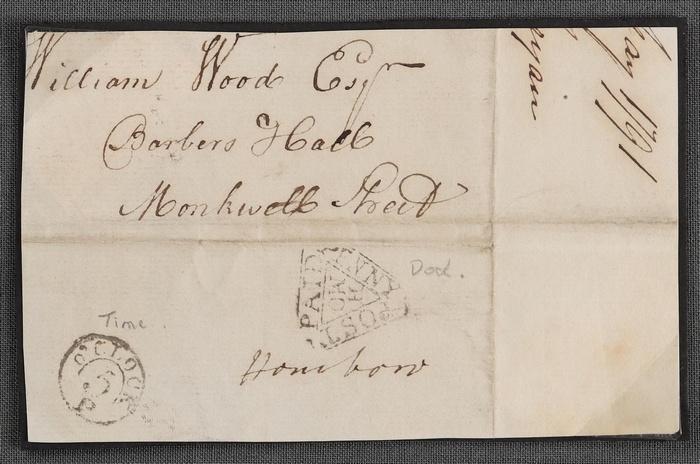 William Wood Esqr
Barbers Hall
Monkwell Street
PENNY POST PAID
Dock.
Time.
O'CLOCK
5
Hombow
May 1791